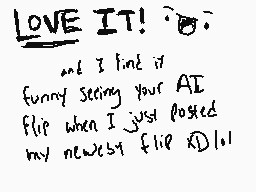 LOVE IT!
and I find it
funny seeing your AI
flip when I just Posted
my newest flip XD lol